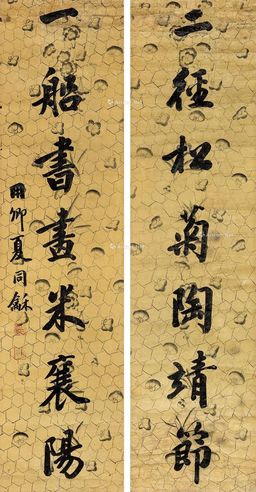 二径松菊陶靖節
一船書畫米襄陽
用卿夏同龢